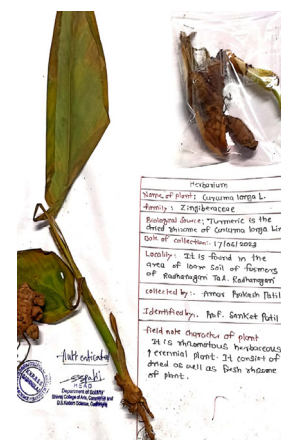 Herbarium
Name of plant: Curcuma longa L.
family: Zingiberaceae
Biological Source: Turmeric is the
dried rhizome of Curcuma longa Lin
Date of collection:- 17/06/2023
Locality: It is found in the
area of loam soil of farmers
of Radhanagari Tal. Radhanagari
collected by:- Amar Prakash Patil
Identified by: Prof. Sanket Patil
field note charactor of plant
It is rhizomatous herbaceous
perennial plant. It consist of
dried as well as fresh rhizome
of plant.
HEAD
Department of Botany